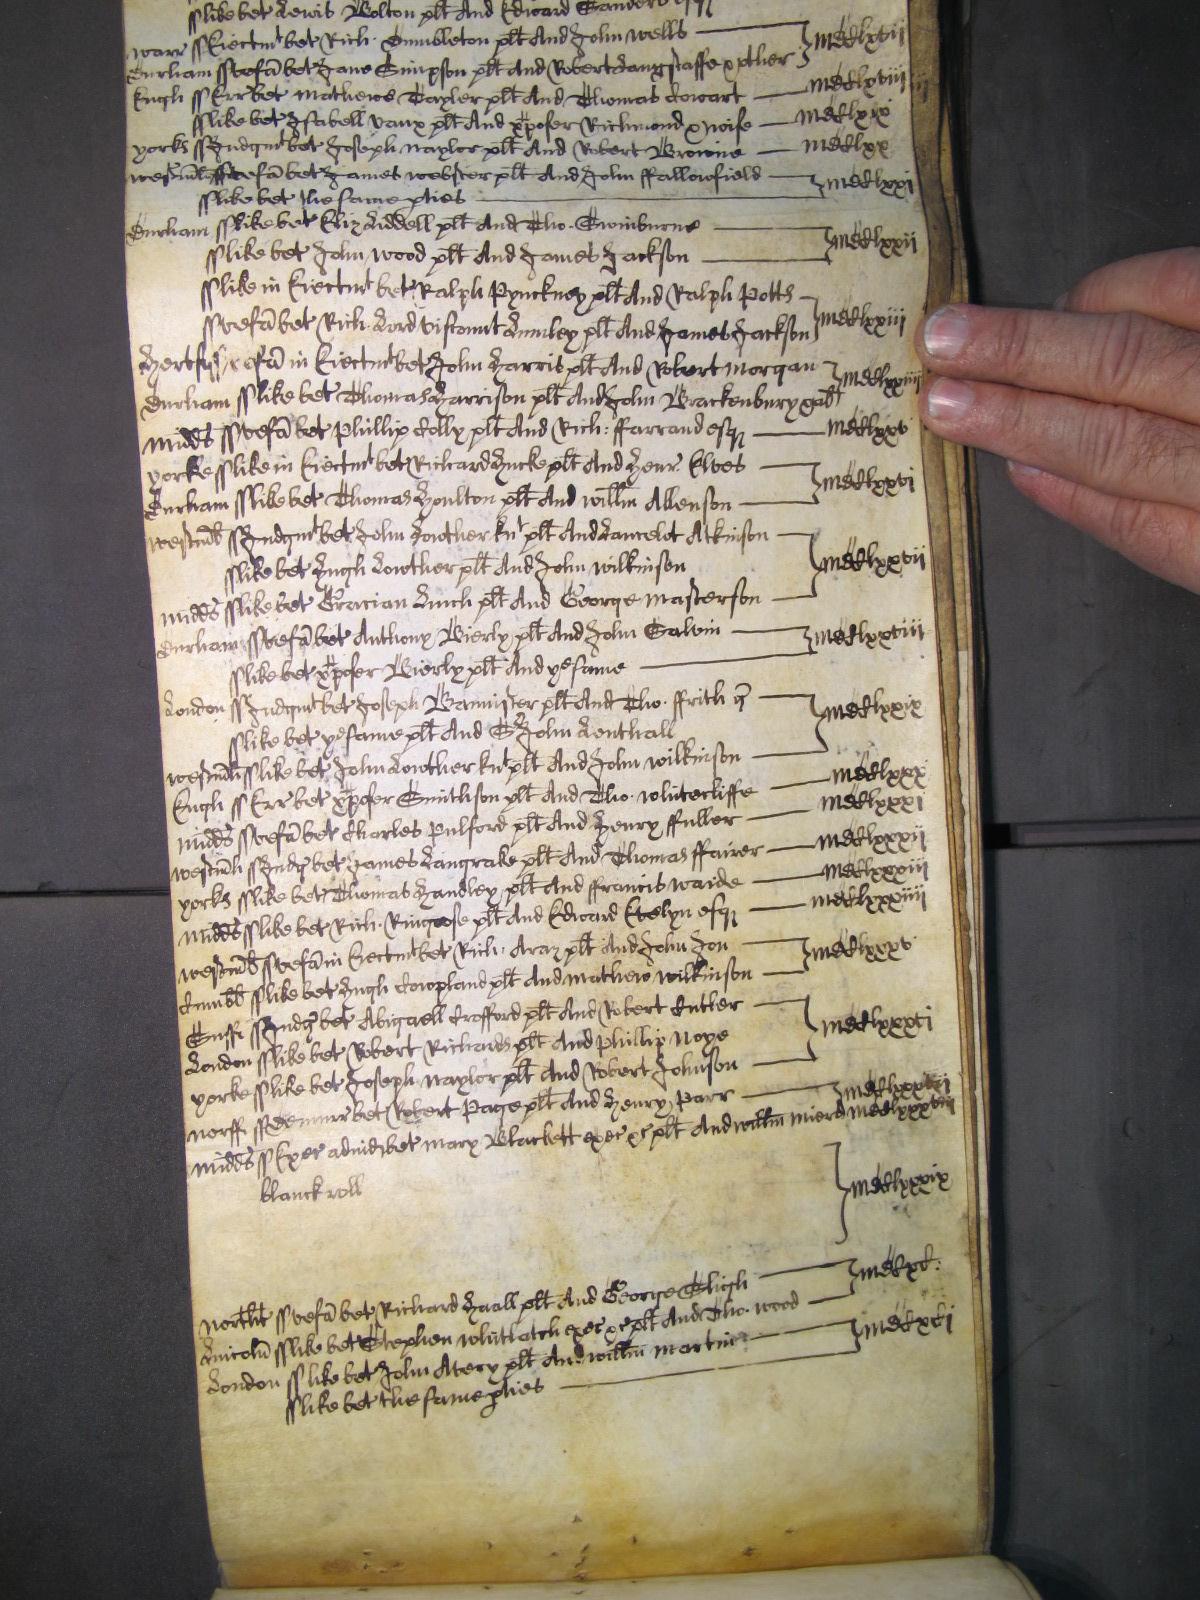 ss like bet Lewis Bolton plt And Edward Sanders esqr
warr ss Eiectmt bet Rich. Dumbleton plt And John wells mcclxvii
Durham ss Defā bet Jane Simpson plt And Robert Langstaffe x ux ther
Engli ss Err bet Mathewe Tayler plt And Thomas Cowart mcclxviii
ss like bet Isabell vaux plt And xpofer Richmond x wife mcclxix
yorks ss Judgmt bet Joseph Naylor plt And Robert Browne mcclxx
westmld ss Defā bet James webster plt And John ffallowfield mcclxxi
ss like bet the same pties
Durham ss like bet Eliz Liddell plt And Tho. Swinburne mcclxxii
ss like bet John wood plt And James Jackson
ss like in Eiectmt bet Ralph Pynckney plt And Ralph Potts
ss Defā bet Rich. Lord viscount Lumley plt And James Jackson mcclxxiii
Hertf ss Defā in Eiectmt bet John Harris plt And Robert Morgan
Durham ss like bet Thomas Harrison plt And John Brackenbury mcclxxiiii
midds ss Defā bet Phillip Colby plt And Rich: ffarrand esqr mcclxxv
yorke ss like in Eiectmt bet Richard Hucke plt And Henr. Elwes
Durham ss like bet Thomas Houlton plt And willm Allenson mcclxxvi
westmld ss Judgmt bet John Lowther knt plt And Lancelot Atkinson
ss like bet Hugh Lowther plt And John wilkinson mcclxxvii
midds ss like bet Gracian Linch plt And George Masterson
Durham ss Defā bet Anthony Bierly plt And John Salvin mcclxxviii
ss like bet xpofer Bierly plt And ye same
London ss Judgmt bet Joseph Bannister plt And Tho. ffrith
ss like bet ye same plt And Sr John Lenthall mcclxxix
westmld ss like bet John Lowther knt plt And John wilkinson
Engli ss Err bet xpofer Smithson plt And Tho. whitecliffe mcclxxx
midds ss Defā bet Charles Pulford plt And Henry ffuller mcclxxxi
westmld ss Judgt bet James Langrake plt And Thomas ffairer mcclxxxii
yorks ss like bet Thomas Handley plt And ffrancis waide mcclxxxiii
midds ss like bet Rich. Ringrose plt And Edward Evelyn esqr mcclxxxiiii
westmld ss Defā in Eiectmt bet Rich. Aray plt And John Jon
Cumbd ss like bet Hugh Cowpland plt And Mathew wilkinson mcclxxxv
Suff ss Judgt bet Abigaell Crafford plt And Robert Cutler
London ss like bet Robert Richards plt And Phillip Noye mcclxxxvi
yorke ss like bet Joseph Naylor plt And Robert Johnson
Norff ss Demurr bet Robert Page plt And Henry Parr mcclxxxvii
midds ss Exec admid bet Mary Blackett exec xc plt And willm Mierd mcclxxxviii
blanck roll mcclxxxix
Northt ss Defā bet Richard Haall plt And George Sligh mccxc.
Lincoln ss like bet Stephen whitlatch exec xc plt And Tho. wood
London ss like bet John Avery plt And willm Martin mccxci
ss like bet the same pties